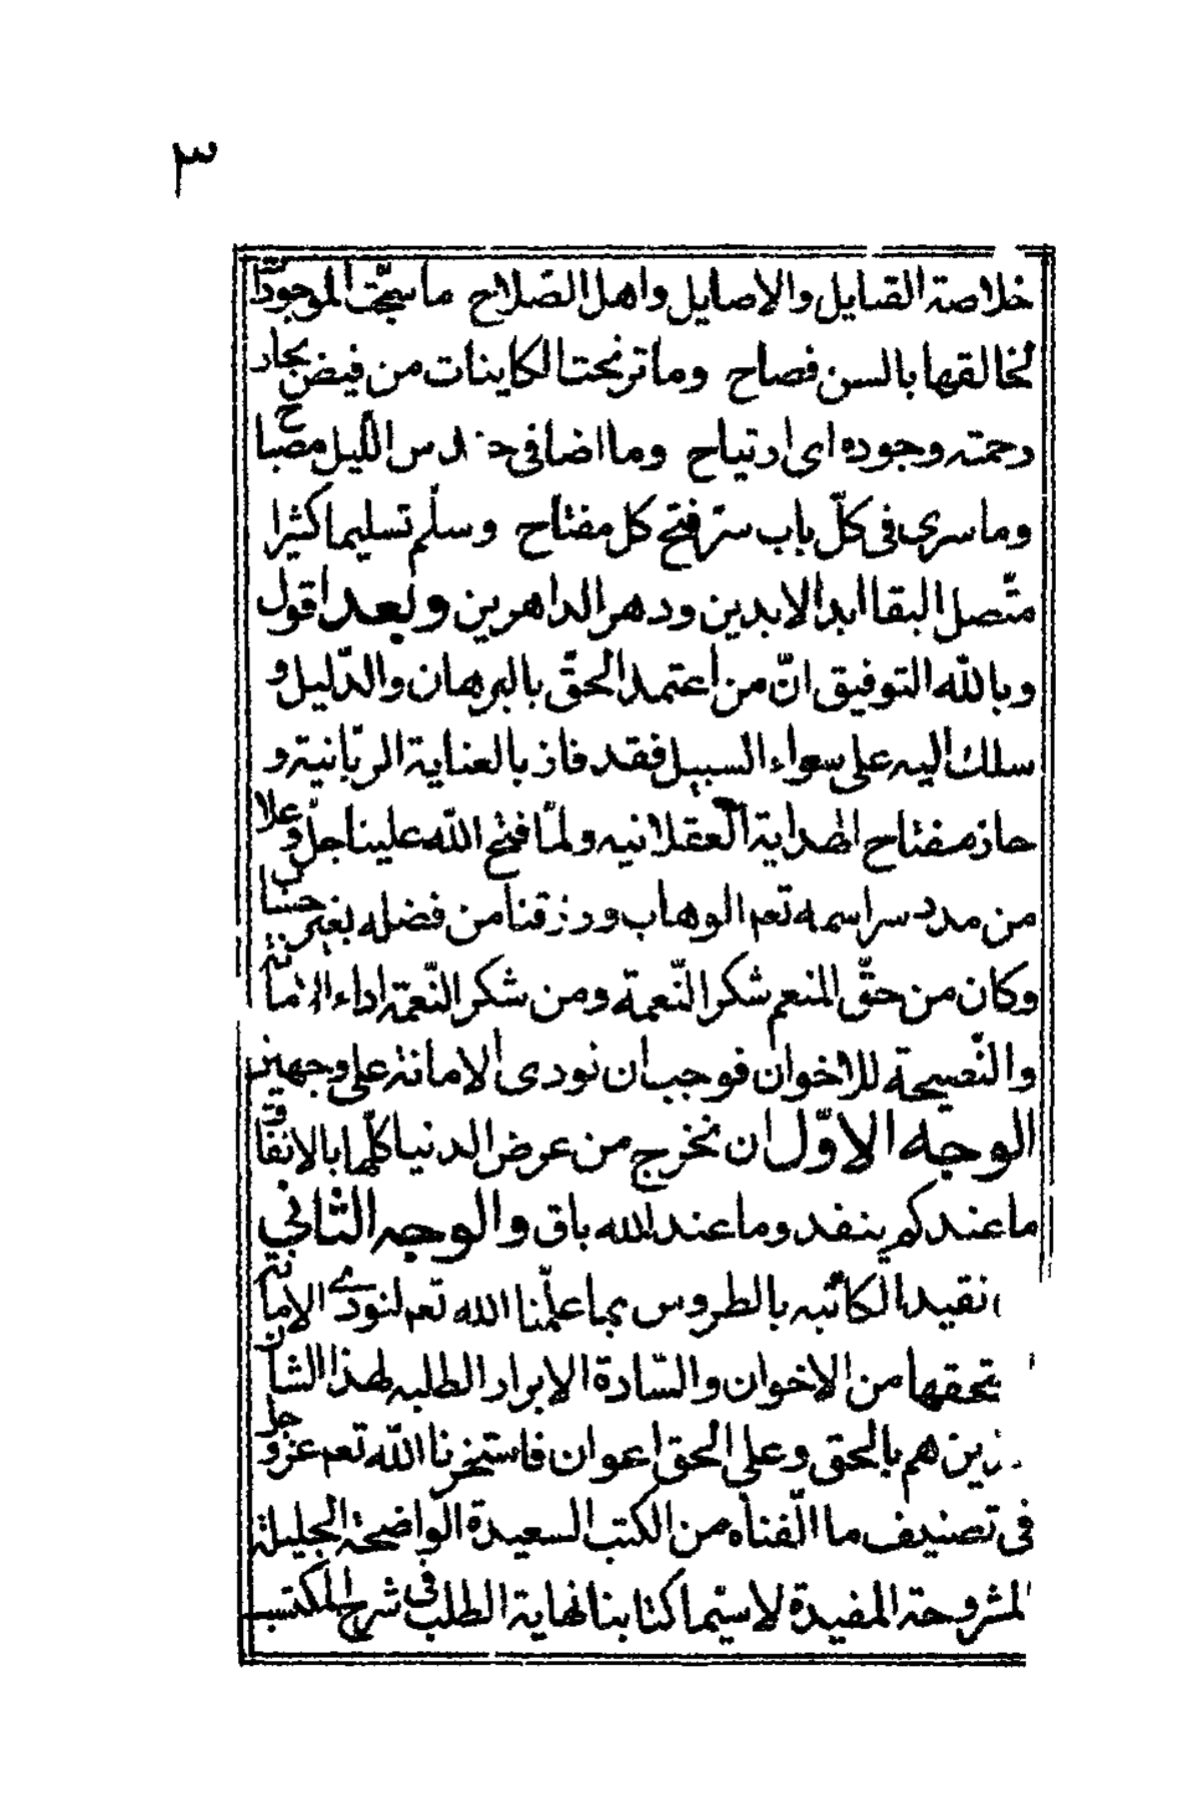 ٣
خلاصة القبايل والاصايل واهل الصّلاح ما سبّحت الموجودات
لخالقها بالسن فصاح وما ترنحت الكاينات من فيض بحار
رحمته وجوده اى ارتياح وما اضا فى حنادس اللّيل مصباح
وما سرى فى كلّ باب سرّ فتح كل مفتاح وسلّم تسليما كثيرا
متّصل البقا ابد الابدين ودهر الداهرين وبعد اقول
وبالله التوفيق انّ من اعتمد الحقّ بالبرهان والدّليل و
سلك اليه على سواء السبيل فقد فاز بالعناية الربّانية و
حاز مفتاح الهداية العقلانيه ولمّا فتح الله علينا جلّ وعلا
من مدد سر اسمه تعم الوهاب ورزقنا من فضله بغير حساب
وكان من حقّ المنعم شكر النّعمة ومن شكر النّعمة اداء الامانة
والنّصيحة للاخوان فوجب ان نودى الامانة على وجهين
الوجه الاوّل ان نخرج من عرض الدنيا كلّها بالانفاق
ما عندكم ينفد وما عند الله باق والوجه الثانى
نقيد الكاتبه بالطروس بما علّمنا الله تعم لنودى الامانة
تحقها من الاخوان والسّادة الابرار الطلبه لهذا الشان
ـذين هم بالحق وعلى الحق اعوان فاستخرنا الله تعم عز وجل
فى تصنيف ما الّفناه من الكتب السعيدة الواضحة الجليلة
المشروحة المفيدة لا سيّما كتابنا نهاية الطلب فى شرح المكتسب